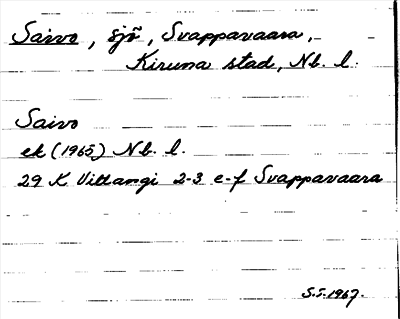 Saivo, sjö, Svappavaara,
Kiruna stad, Nb. l.
Saivo
ek (1965) Nb. l.
29 K Vittangi 2-3 e-f Svappavaara
S.S. 1967.